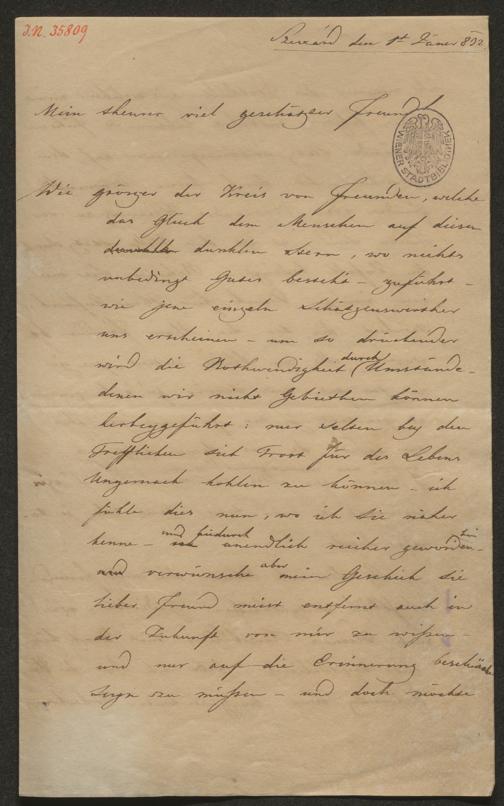 J.N. 35809
Szexárd den 1t Jäner 832
Mein theurer viel geschätzter Freund!
WIENER STADTBIBLIOTHEK
Wie grösser der Kreis von Freunden, welche
das Glück dem Menschen auf diesen
dunklen Stern, wo nichts
unbedingt Gutes besteht - zuführt -
wie jene einzeln Schätzenswerther
uns erscheinen - um so drückender
wird die Nothwendigkeit durch Umstände -
denen wir nicht Gebiethen können
herbeygeführt: nur selten bey den
Trefflichen sich Trost für des Lebens
Ungemach hohlen zu können - ich
fühle dies nun, wo ich Sie näher
kenne - und hiedurch unendlich reicher geworden bin -
und verwünsche aber mein Geschick Sie
lieber Freund meist entfernt auch in
der Zukunft von mir zu wissen -
und nur auf die Erinnerung beschränkt
seyn zu müssen - und doch möchte